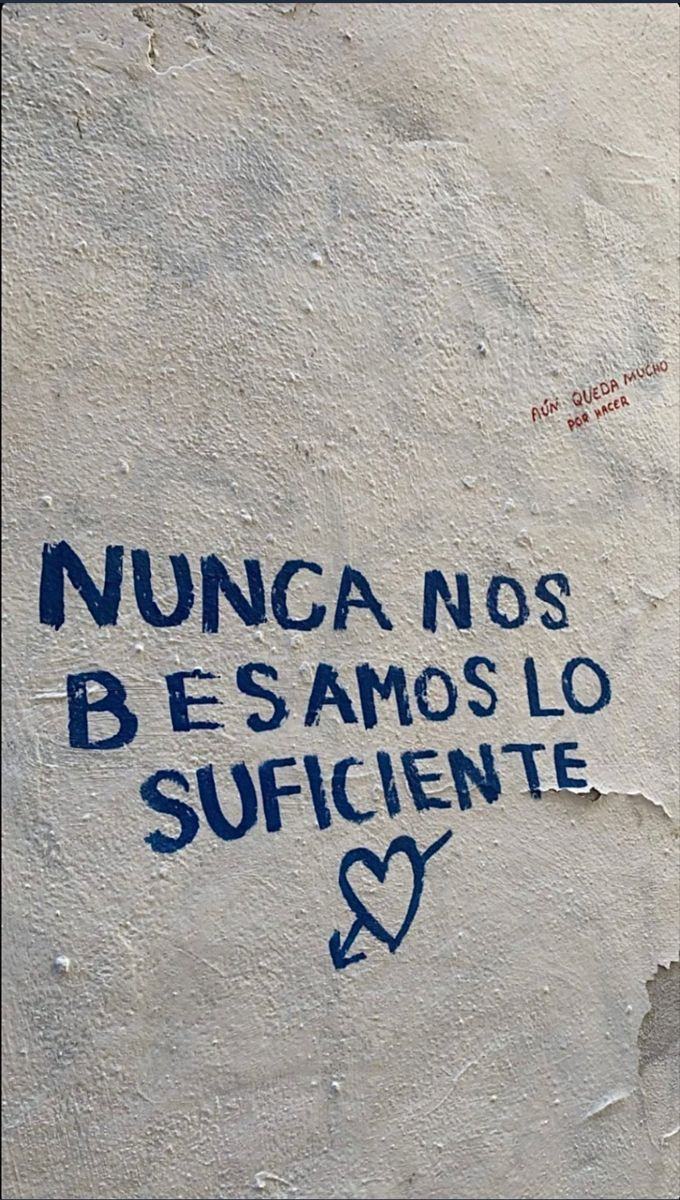 AÚN QUEDA MUCHO
POR HACER
NUNCA NOS
BESAMOS LO
SUFICIENTE